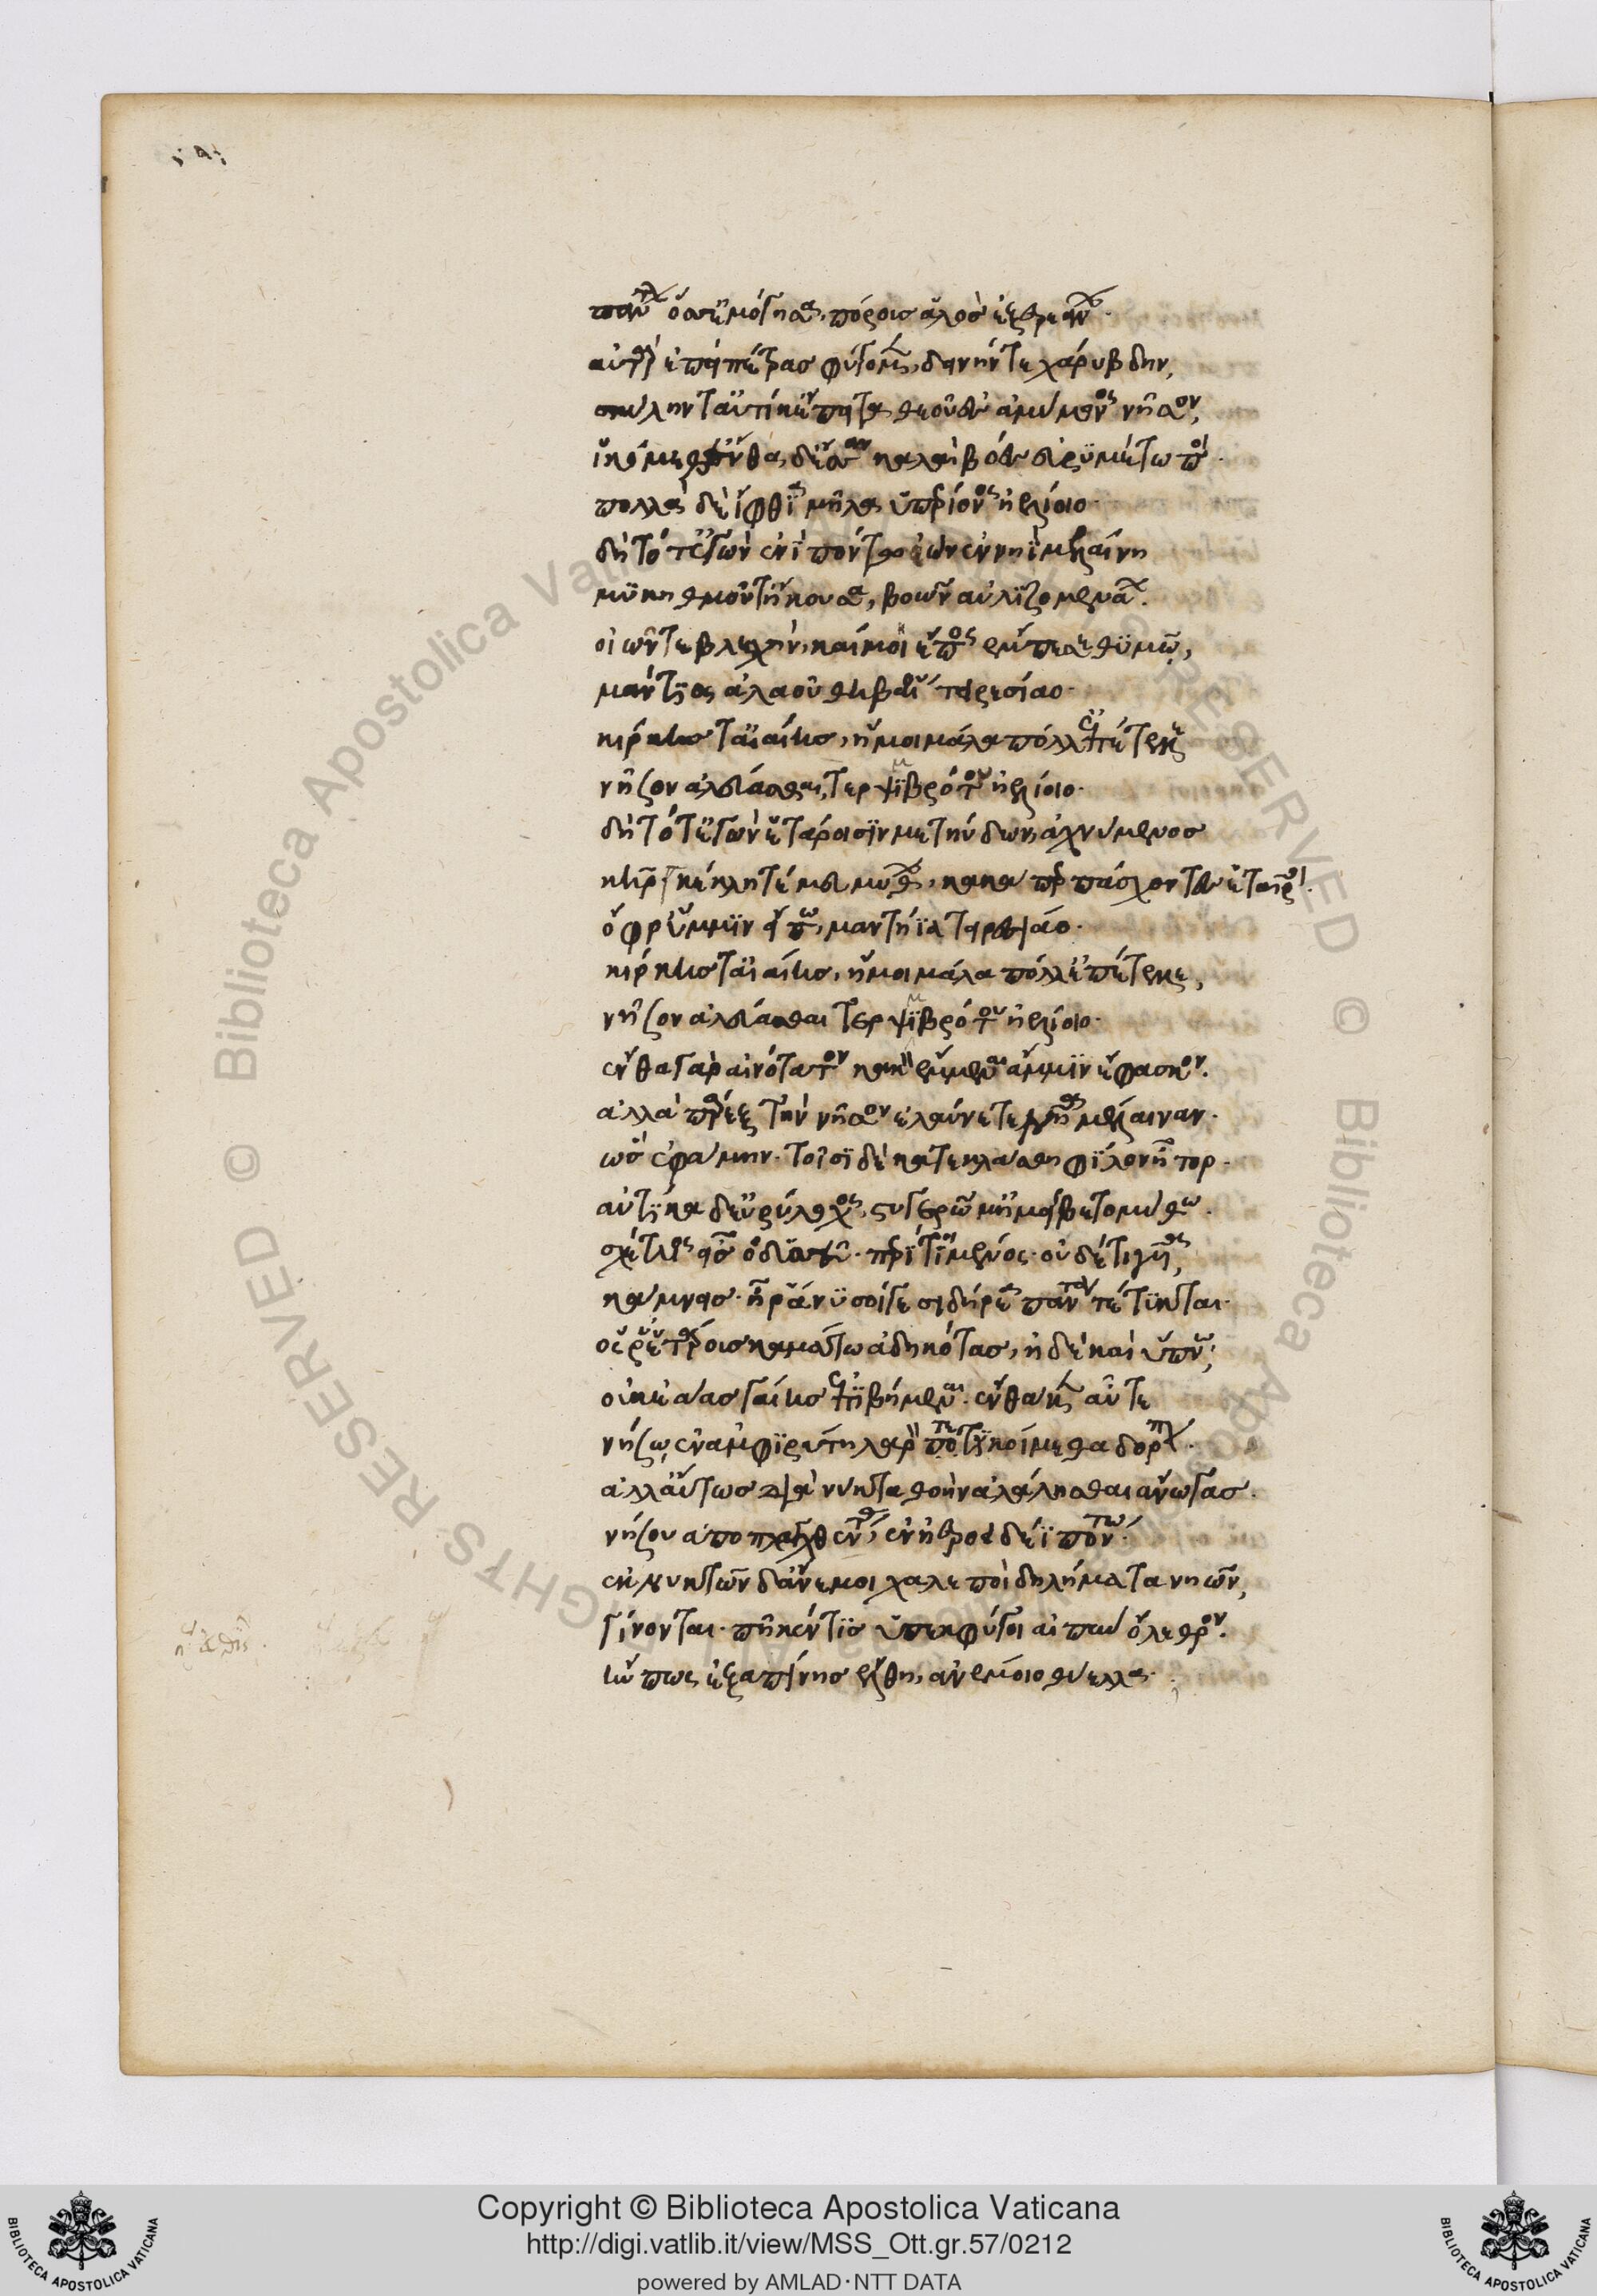 πάντων ὅσσ' ἐμόγησα, πόρους ἁλὸς ἐξερεείνων.
αὐτὰρ ἐπεὶ πέτρας φύγομεν, δεινήν τε χάρυβδην,
σκύλην τ' αὐτίκ' ἔπειτα θεοῦ ἐς ἀμύμονος νῆσον,
ἱκόμεθ' ἔνθα δ' ἔσαν καλαὶ βόες εὐρυμέτωποι.
πολλὰ δὲ ἴφθια μῆλα ὑπερίονος ἠελίοιο.
δὴ τότ' ἐγὼν ἐνὶ πόντω ἐὼν ἐν νηῒ μελαίνη
μυκηθμοῦ τ' ἤκουσα, βοῶν αὐλιζομενάων.
οἰῶν τε βληχήν, καί μοι ἔπος ἔμπεσε θυμῶ,
μάντιος ἀλαοῦ θηβαίου τειρεσίαο.
κίρκης τ' αἰαίης, ἥ μοι μάλα πόλλ' ἐπέτελλε
νῆσον ἀλεύασθαι, τερψιμβρότου ἠελίοιο.
δὴ τότ' ἐγὼν ἑτάροισιν μετηύδων, ἀχνύμενος
κῆρ. κέκλητέ μευ μύθων, κακά περ πάσχοντες ἑταῖροι.
ὄφρ' ὔμμιν εἴπω, μαντήϊα τειρεσίαο.
κίρκης τ' αἰαίης, ἥ μοι μάλα πόλλ' ἐπέτελλε,
νῆσον ἀλεύασθαι τερψιμβρότου ἠελίοιο.
ἔνθα γὰρ αἰνότατον κακὸν ἔμμεναι ἄμμιν ἔφασκον.
ἀλλὰ παρὲξ τὴν νῆσον ἐλαύνετε νῆα μέλαιναν.
ὣς ἐφάμην. τοῖσι δὲ κατεκλάσθη φίλον ἦτορ.
αὐτίκα δ' εὐρύλοχος, στυγερῶ μ' ἠμείβετο μύθω.
σχέτλιος εἰς ὀδυσεῦ. περί τοι μένος. οὐδέ τι γυῖα,
κάμνεις. ἦ ῥά νυ σοί γε σιδήρεα πάντα τέτυκται.
ὅς ῥ' ἑτάροις καμάτω ἀδηκότας, ἠδὲ καὶ ὕπνω,
οὐκ ἐάας γαίης ἐπιβήμεναι. ἔνθα κεν αὖτε
νήσω ἐν ἀμφιρύτη λαρὸν τετυκοίμεθα δόρπον.
ἀλλ' αὔτως διὰ νύκτα θοὴν ἀλάλησθαι ἄνωγας.
νήσου ἀποπλαγχθέντας, ἐν ἠεροειδέϊ πόντω.
ἐκ νυκτῶν δ' ἄνεμοι χαλεποὶ δηλήματα νηῶν,
γίνονται. πῆ κέν τις ὑπεκφύγοι αἰπὺν ὄλεθρον.
ἤν πως ἐξαπίνης ἔλθη, ἀνέμοιο θύελλα.
Copyright © Biblioteca Apostolica Vaticana
http://digi.vatlib.it/view/MSS_Ott.gr.57/0212
powered by AMLAD·NTT DATA